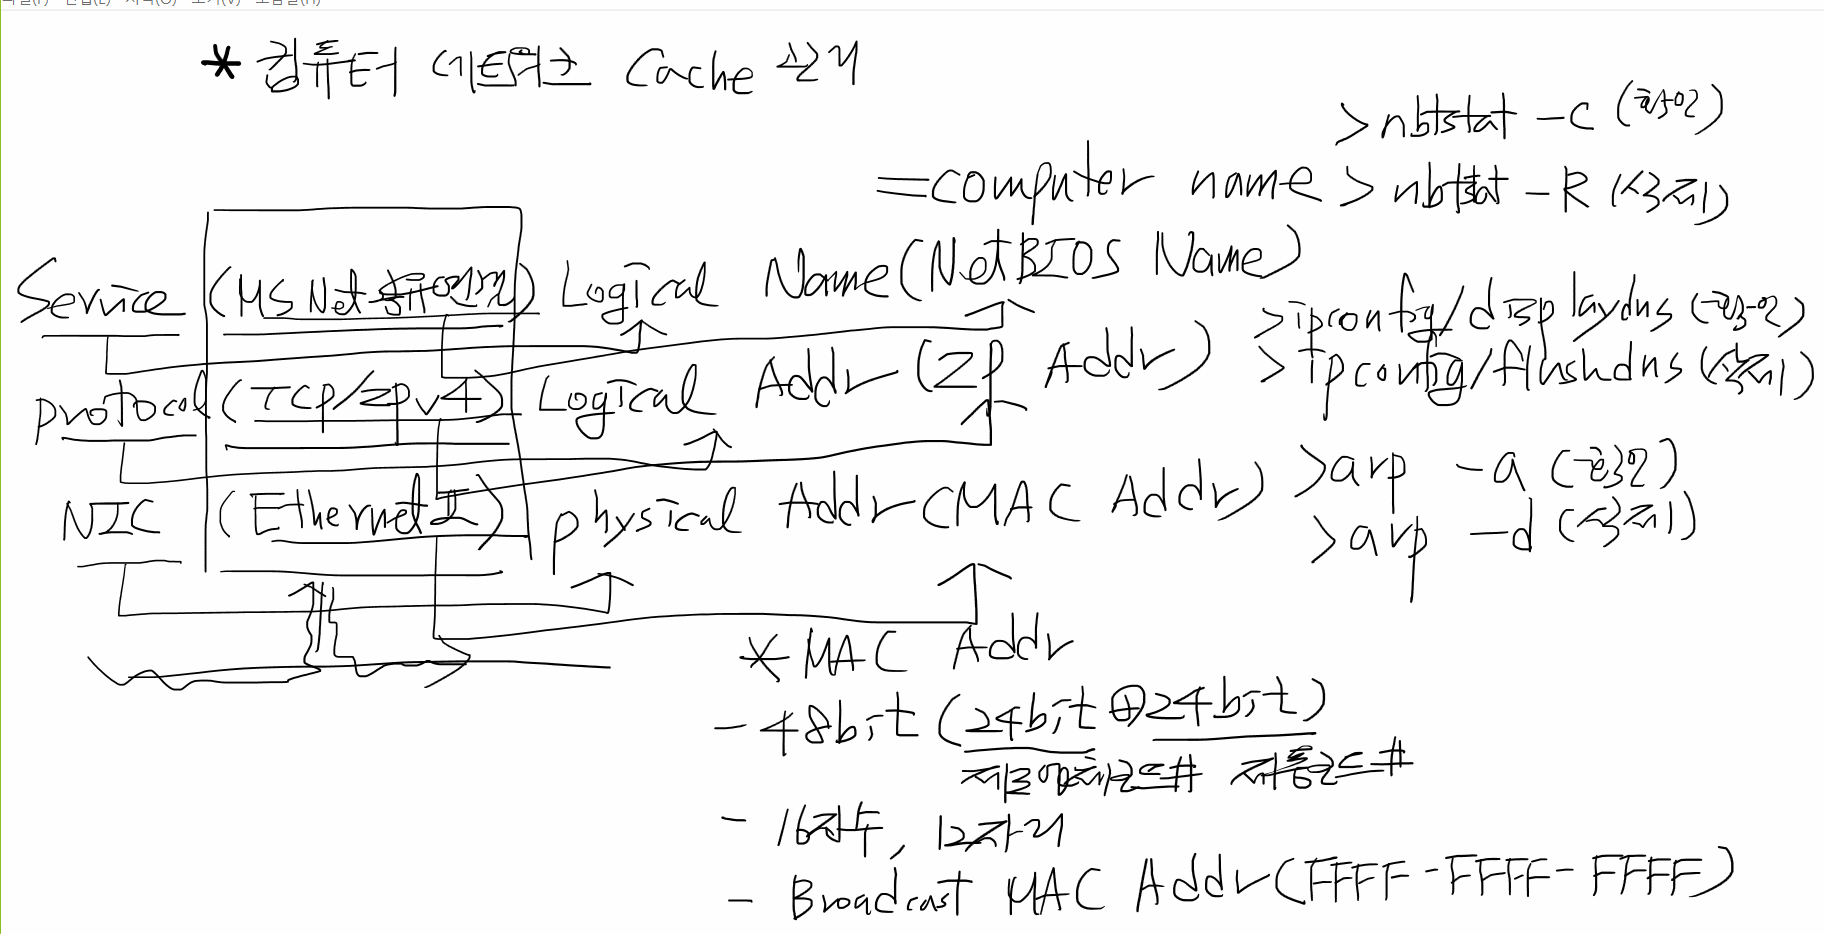 * 컴퓨터 네트워크 Cache 관리
>nbtstat -c (확인)
=computer name >nbtstat -R (삭제)
Service (MS Net 공유 ) Logical Name(NetBIOS Name)
>ipconfig/displaydns (확인)
Protocol (TCP/IPv4) Logical Addr (IP Addr) >ipconfig/flushdns (삭제)
NIC (Ethernet II) Physical Addr(MAC Addr) >arp -a (확인)
>arp -d (삭제)
* MAC Addr
- 48bit (24bit ⊕ 24bit)
제조업체코드# 제품코드#
- 16진수, 12자리
- Broadcast MAC Addr(FFFF-FFFF-FFFF)